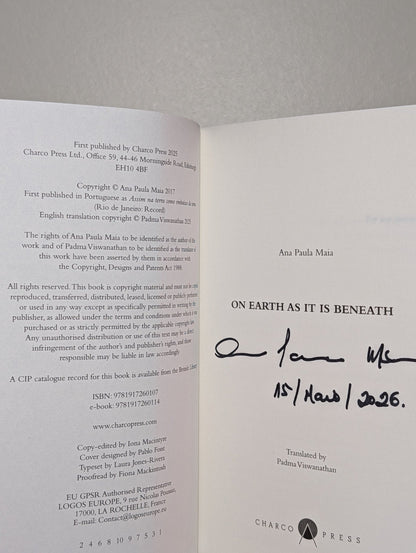 First published by Charco Press 2025
Charco Press Ltd., Office 59, 44-46 Morningside Road, Edinburgh
EH10 4BF
Copyright © Ana Paula Maia 2017
First published in Portuguese as Assim na terra como embaixo da terra
(Rio de Janeiro: Record)
English translation copyright © Padma Viswanathan 2025
The rights of Ana Paula Maia to be identified as the author of the
work and of Padma Viswanathan to be identified as the translator of
this work have been asserted by them in accordance with
the Copyright, Designs and Patents Act 1988.
All rights reserved. This book is copyright material and must not be copied,
reproduced, transferred, distributed, leased, licensed or publicly performed
or used in any way except as specifically permitted in writing by the
publisher, as allowed under the terms and conditions under which it was
purchased or as strictly permitted by the applicable copyright law.
Any unauthorised distribution or use of this text may be a direct
infringement of the author's and publisher's rights, and those
responsible may be liable in law accordingly.
A CIP catalogue record for this book is available from the British Library.
ISBN: 9781917260107
e-book: 9781917260114
www.charcopress.com
Copy-edited by Iona Macintyre
Cover designed by Pablo Font
Typeset by Laura Jones-Rivera
Proofread by Fiona Mackintosh
EU GPSR Authorised Representative
LOGOS EUROPE, 9 rue Nicolas Poussin,
17000, LA ROCHELLE, France
E-mail: Contact@logoseurope.eu
2 4 6 8 10 9 7 5 3 1
Ana Paula Maia
ON EARTH AS IT IS BENEATH
15/ /2026.
Translated by
Padma Viswanathan
CHARCO PRESS